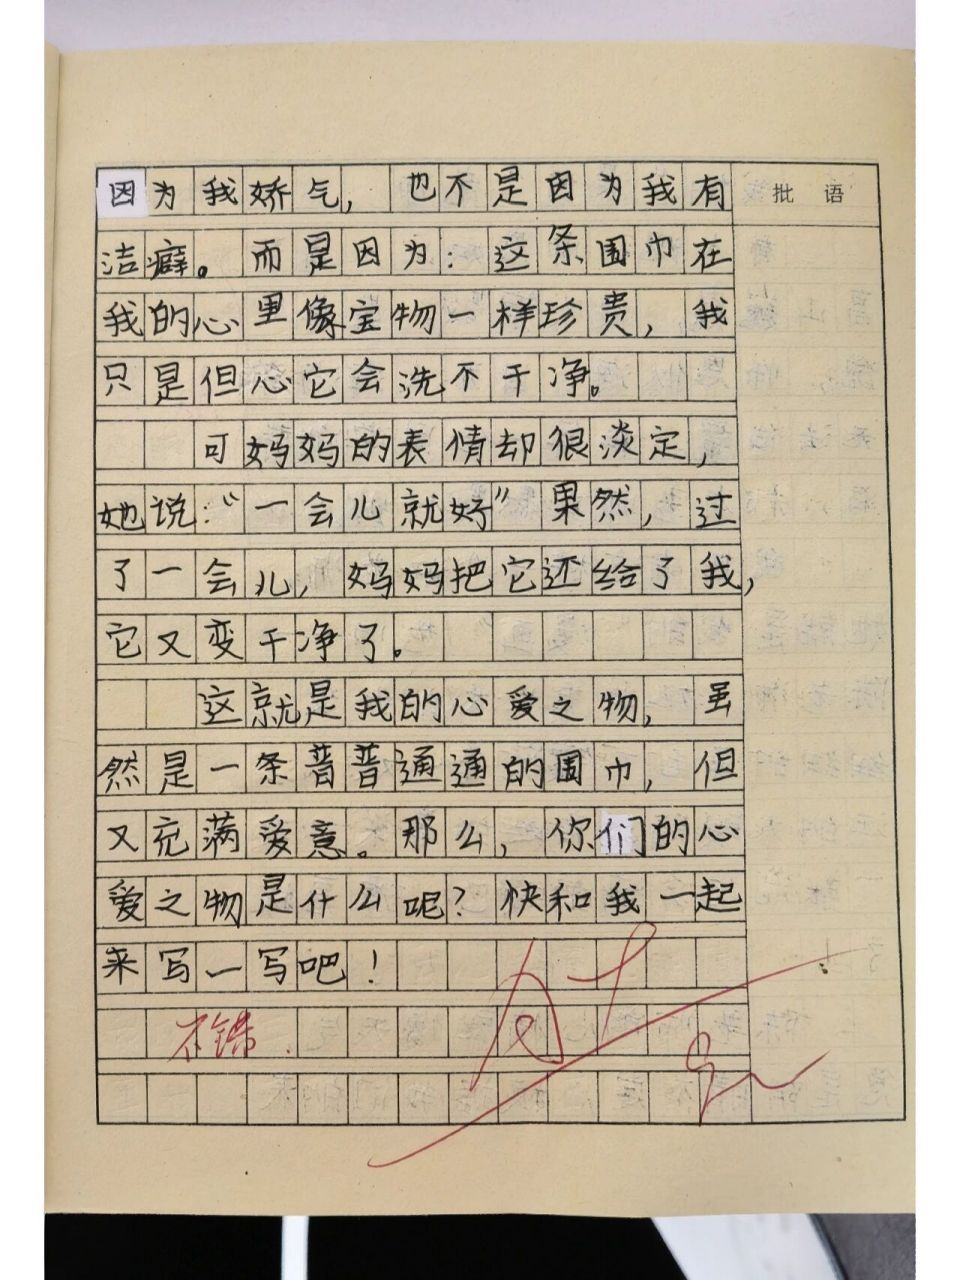 因为我娇气，也不是因为我有
批语
洁癖。而是因为：这条围巾在
我的心里像宝物一样珍贵，我
只是但心它会洗不干净。
可妈妈的表情却很淡定，
她说：“一会儿就好”果然，过
了一会儿，妈妈把它还给了我，
它又变干净了。
这就是我的心爱之物，虽
然是一条普普通通的围巾，但
又充满爱意。那么，你们的心
爱之物是什么呢？快和我一起
来写一写吧！
不错.